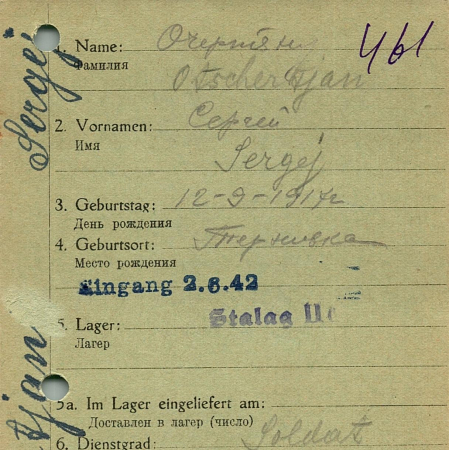 1. Name:
Фамилия
461
2. Vornamen: Сергей
Имя
Sergej
3. Geburtstag: 12-9-1917г
День рождения
4. Geburtsort: Терновка
Место рождения
Eingang 2.6.42
5. Lager: Stalag
Лагер
5a. Im Lager eingeliefert am:
Доставлен в лагерь (число)
6. Dienstgrad: Soldat
Sergej